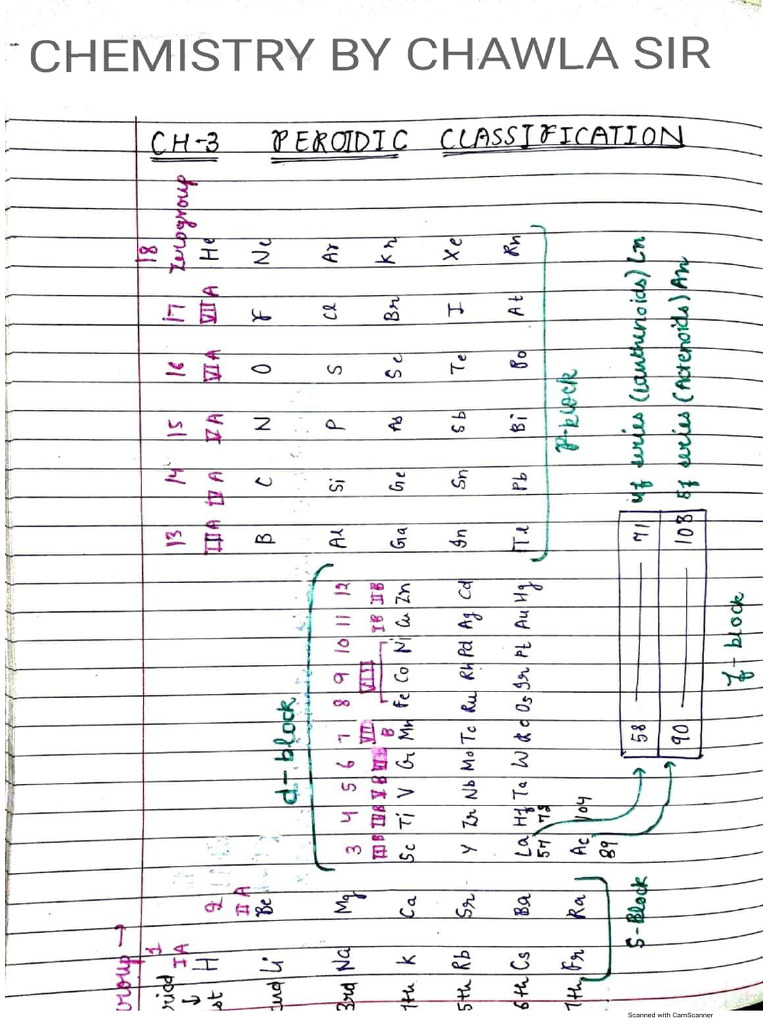 CHEMISTRY BY CHAWLA SIR
CH-3 PEROIDIC CLASSIFICATION
roup →
1 18
riod IA 13 14 15 16 17 zerogroup
↓
st H 2 IIIA IVA VA VIA VIIA He
IIA
nd Li Be B C N O F Ne
d-block
3rd Na Mg 3 4 5 6 7 8 9 10 11 12 Al Si P S Cl Ar
IIIB IVB VB VIB VIIB VIII IB IIB
4th K Ca Sc Ti V Cr Mn Fe Co Ni Cu Zn Ga Ge As Se Br Kr
5th Rb Sr Y Zr Nb Mo Tc Ru Rh Pd Ag Cd In Sn Sb Te I Xe
6th Cs Ba La Hf Ta W Re Os Ir Pt Au Hg Tl Pb Bi Po At Rn
57 72
7th Fr Ra Ac 104
89
P-block
S-Block
58 71 4f series (lanthenoids) Ln
90 103 5f series (Actenoids) An
f-block
Scanned with CamScanner